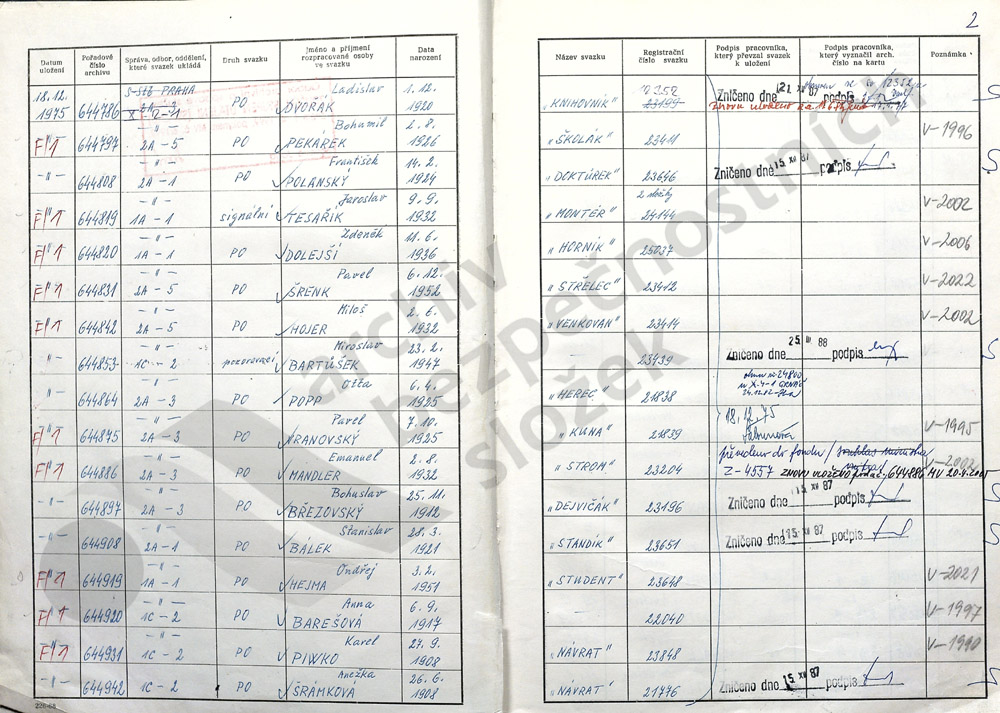 2
Datum uložení
Pořadové číslo archivu
Správa, odbor, oddělení, které svazek ukládá
Druh svazku
Jméno a příjmení rozpracované osoby ve svazku
Data narození
Název svazku
Registrační číslo svazku
Podpis pracovníka, který převzal svazek k uložení
Podpis pracovníka, který vyznačil arch. číslo na kartu
Poznámka
18.12. 1975 644786 S-StB PRAHA PO Ladislav DVOŘÁK 1.12. 1920 "KNIHOVNÍK" 23199 Zničeno dne 21. XII 87 podpis
F 644797 -"- 2A-5 PO Bohumil PEKÁREK 2.8. 1926 "ŠKOLÁK" 23411 V-1996
-"- 644808 -"- 2A-1 PO František POLANSKÝ 14.2. 1924 "DOKTŮREK" 23646 Zničeno dne 15. XII 87 podpis
F 644819 -"- 1A-1 signální Jaroslav TESAŘÍK 9.9. 1932 "MONTÉR" 2 složky 24144 V-2002
F 644820 -"- 1A-1 PO Zdeněk DOLEJŠÍ 11.6. 1936 "HORNÍK" 25037 V-2006
F 644831 -"- 2A-5 PO Pavel ŠRENK 6.12. 1952 "STŘELEC" 23412 V-2022
F 644842 -"- 2A-5 PO Miloš HOJER 2.6. 1932 "VENKOVAN" 23414 V-2002
-"- 644853 -"- 1C-2 pozorovací Miroslav BARTŮŠEK 23.2. 1947 23439 Zničeno dne 25. III 88 podpis
-"- 644864 -"- 2A-3 PO Otta POPP 6.4. 1925 "HEREC" 21838
F 644875 -"- 2A-3 PO Pavel VRANOVSKÝ 7.10. 1925 "KUNA" 21839 18.12.75 V-1995
F 644886 -"- 2A-3 PO Emanuel MANDLER 2.8. 1932 "STROM" 23204 převeden do fondu Z-4557 ZNOVU ULOŽENO pod ač. 644886 MV V-2002
-"- 644897 -"- 2A-3 PO Bohuslav BŘEZOVSKÝ 25.11. 1912 "DEJVIČÁK" 23196 Zničeno dne 15. XII 87 podpis
-"- 644908 -"- 2A-1 PO Stanislav BÁLEK 28.3. 1921 "STANDÍK" 23651 Zničeno dne 15. XII 87 podpis
F 644919 -"- 1A-1 PO Ondřej HEJMA 3.2. 1951 "STUDENT" 23648 V-2021
F 644920 -"- 1C-2 PO Anna BAREŠOVÁ 6.9. 1917 22040 V-1997
F 644931 -"- 1C-2 PO Karel PIWKO 27.9. 1908 "NÁVRAT" 23848 V-1990
-"- 644942 1C-2 PO Anežka ŠRÁMKOVÁ 26.6. 1908 "NÁVRAT" 21776 Zničeno dne 15. XII 87 podpis
archiv
bezpečnostních
složek